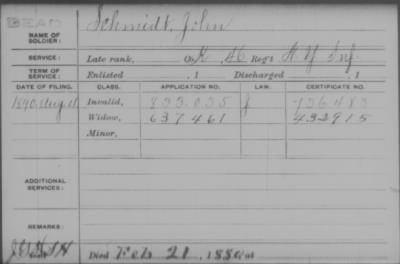 DEAD
Schmidt, John
NAME OF SOLDIER:
SERVICE: Late rank, Co. 46 Reg't N Y Inf.
TERM OF SERVICE: Enlisted , 1 Discharged , 1
DATE OF FILING. CLASS. APPLICATION NO. LAW. CERTIFICATE NO.
1890, Aug. Invalid, 833.035 J 736483
Widow, 637461 433915
Minor,
ADDITIONAL SERVICES:
REMARKS:
Died Feb 21, 188 at